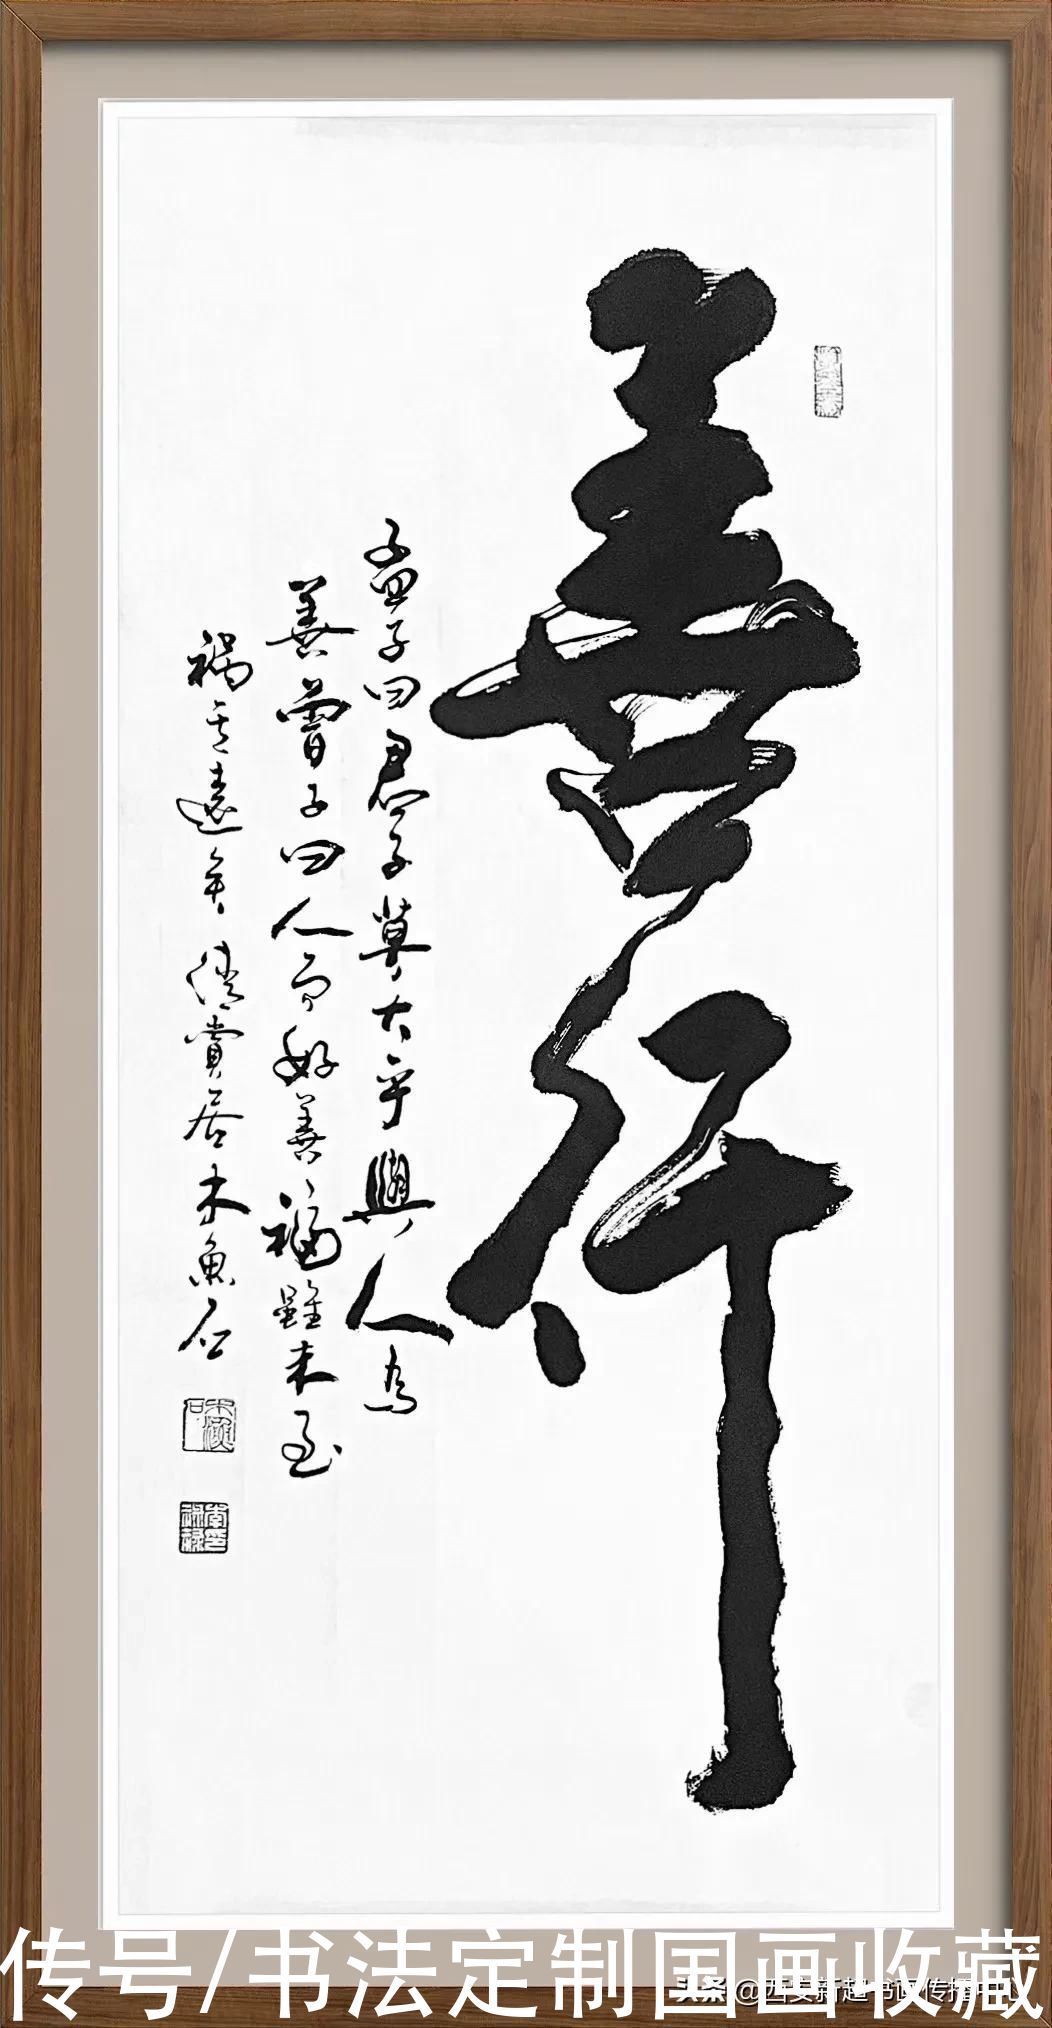 善行
孟子曰君子莫大乎與人為
善曾子曰人而好善福雖未至
禍其遠矣 清賞居木魚石
传号/书法定制国画收藏
头条@西安新超书画传播中心